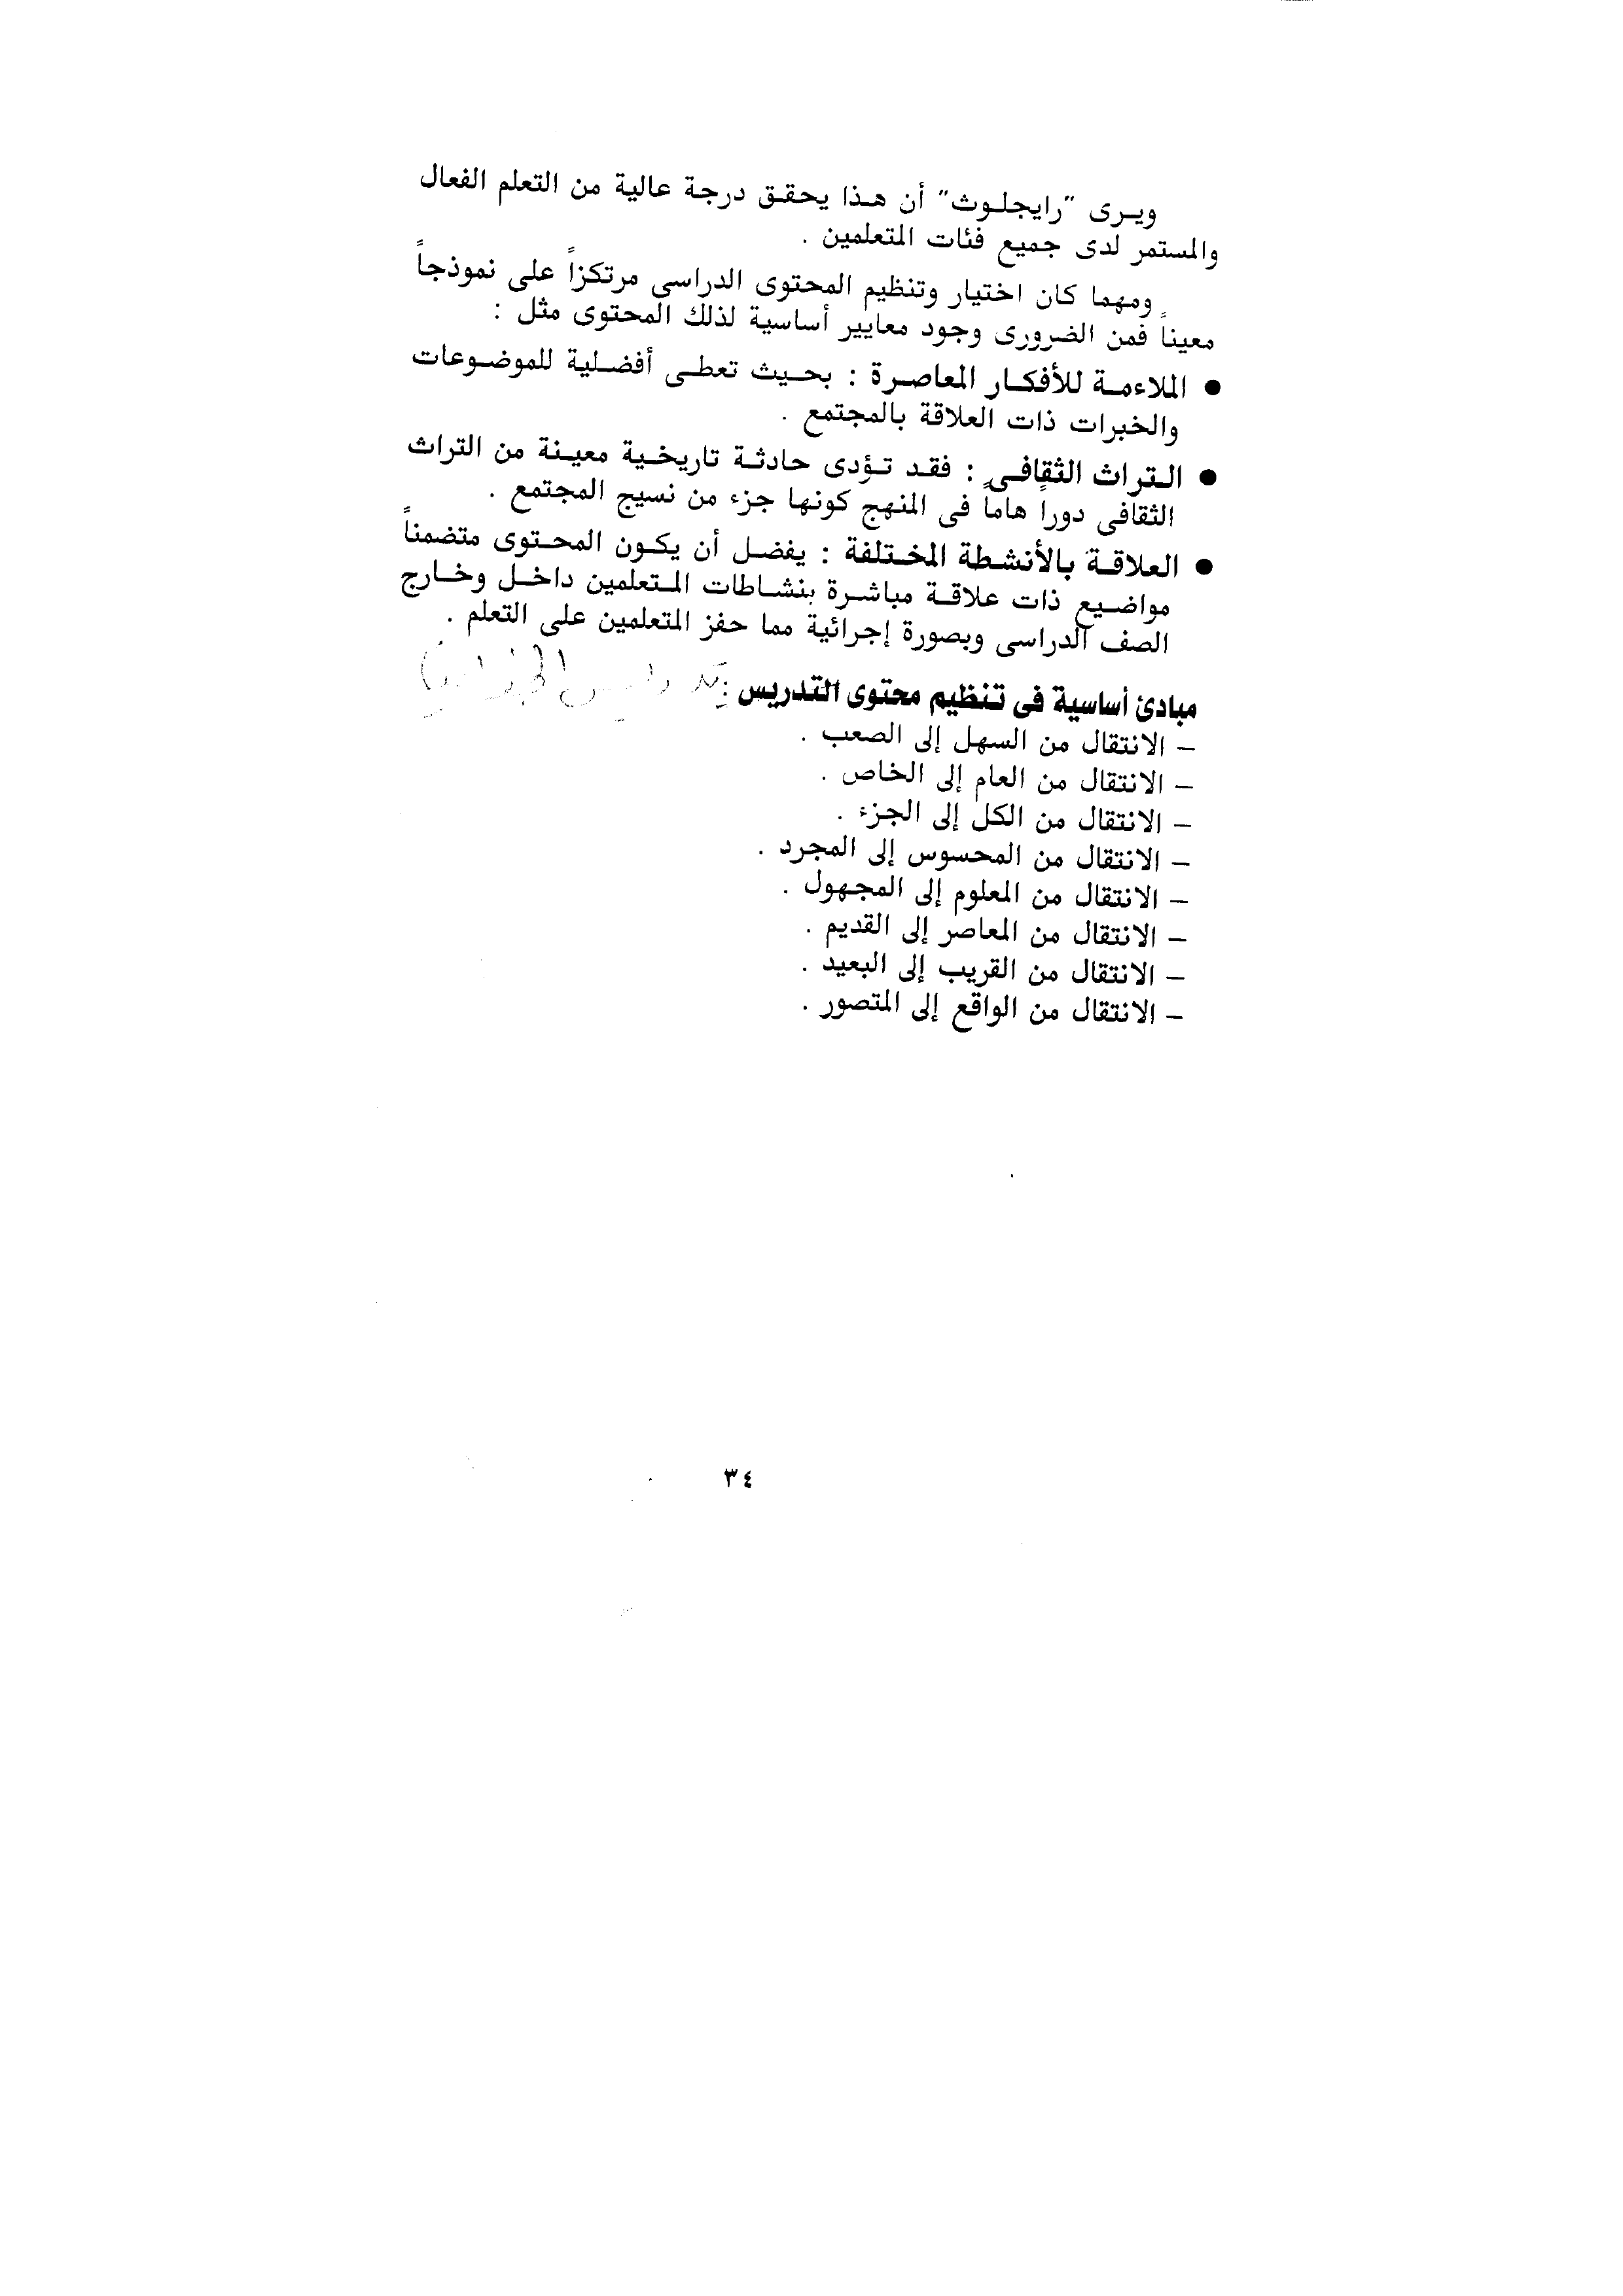 ويرى "رايجلوث" أن هذا يحقق درجة عالية من التعلم الفعال
والمستمر لدى جميع فئات المتعلمين .
ومهما كان اختيار وتنظيم المحتوى الدراسى مرتكزاً على نموذجاً
معيناً فمن الضرورى وجود معايير أساسية لذلك المحتوى مثل :
● الملاءمة للأفكار المعاصرة : بحيث تعطى أفضلية للموضوعات
والخبرات ذات العلاقة بالمجتمع .
● التراث الثقافى : فقد تؤدى حادثة تاريخية معينة من التراث
الثقافى دوراً هاماً فى المنهج كونها جزء من نسيج المجتمع .
● العلاقة بالأنشطة المختلفة : يفضل أن يكون المحتوى متضمناً
مواضيع ذات علاقة مباشرة بنشاطات المتعلمين داخل وخارج
الصف الدراسى وبصورة إجرائية مما حفز المتعلمين على التعلم .
مبادئ أساسية فى تنظيم محتوى التدريس :
– الانتقال من السهل إلى الصعب .
– الانتقال من العام إلى الخاص .
– الانتقال من الكل إلى الجزء .
– الانتقال من المحسوس إلى المجرد .
– الانتقال من المعلوم إلى المجهول .
– الانتقال من المعاصر إلى القديم .
– الانتقال من القريب إلى البعيد .
– الانتقال من الواقع إلى المتصور .
٣٤